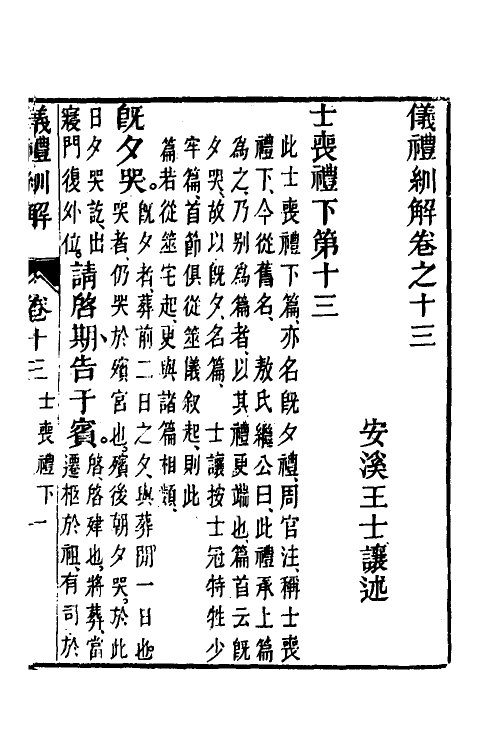 儀禮紃解卷之十三
安溪王士讓述
士喪禮下第十三
此士喪禮下篇亦名旣夕禮周官注稱士喪
禮下今從舊名　敖氏繼公曰此禮承上篇
為之乃别為篇者以其禮更端也篇首云旣
夕哭故以旣夕名篇　士讓按士冠特牲少
牢篇首節俱從筮儀叙起則此
篇若從筮宅起更與諸篇相類
旣夕哭。旣夕者葬前二日之夕與葬閒一日也
哭者仍哭於殯宮也殯後朝夕哭於此
日夕哭訖出
寢門復外位。請啓期告于賓。啓啓肂也將葬當
遷柩於祖有司於
儀禮紃解　卷十三　士喪禮下　一